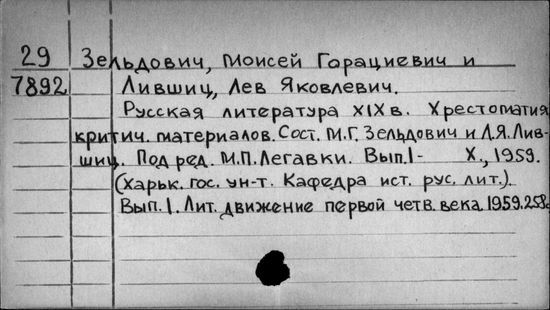 29 Зельдович, Моисей Горациевич и
7892 Лившиц, Лев Яковлевич.
Русская литература XIX в. Хрестоматия
критич. материалов. Сост. М.Г. Зельдович и Л.Я. Лив-
шиц. Под ред. М.П. Легавки. Вып. 1- Х., 1959.
(Харьк. гос. ун-т. Кафедра ист. рус. лит.).
Вып. 1. Лит. движение первой четв. века. 1959. 258с.